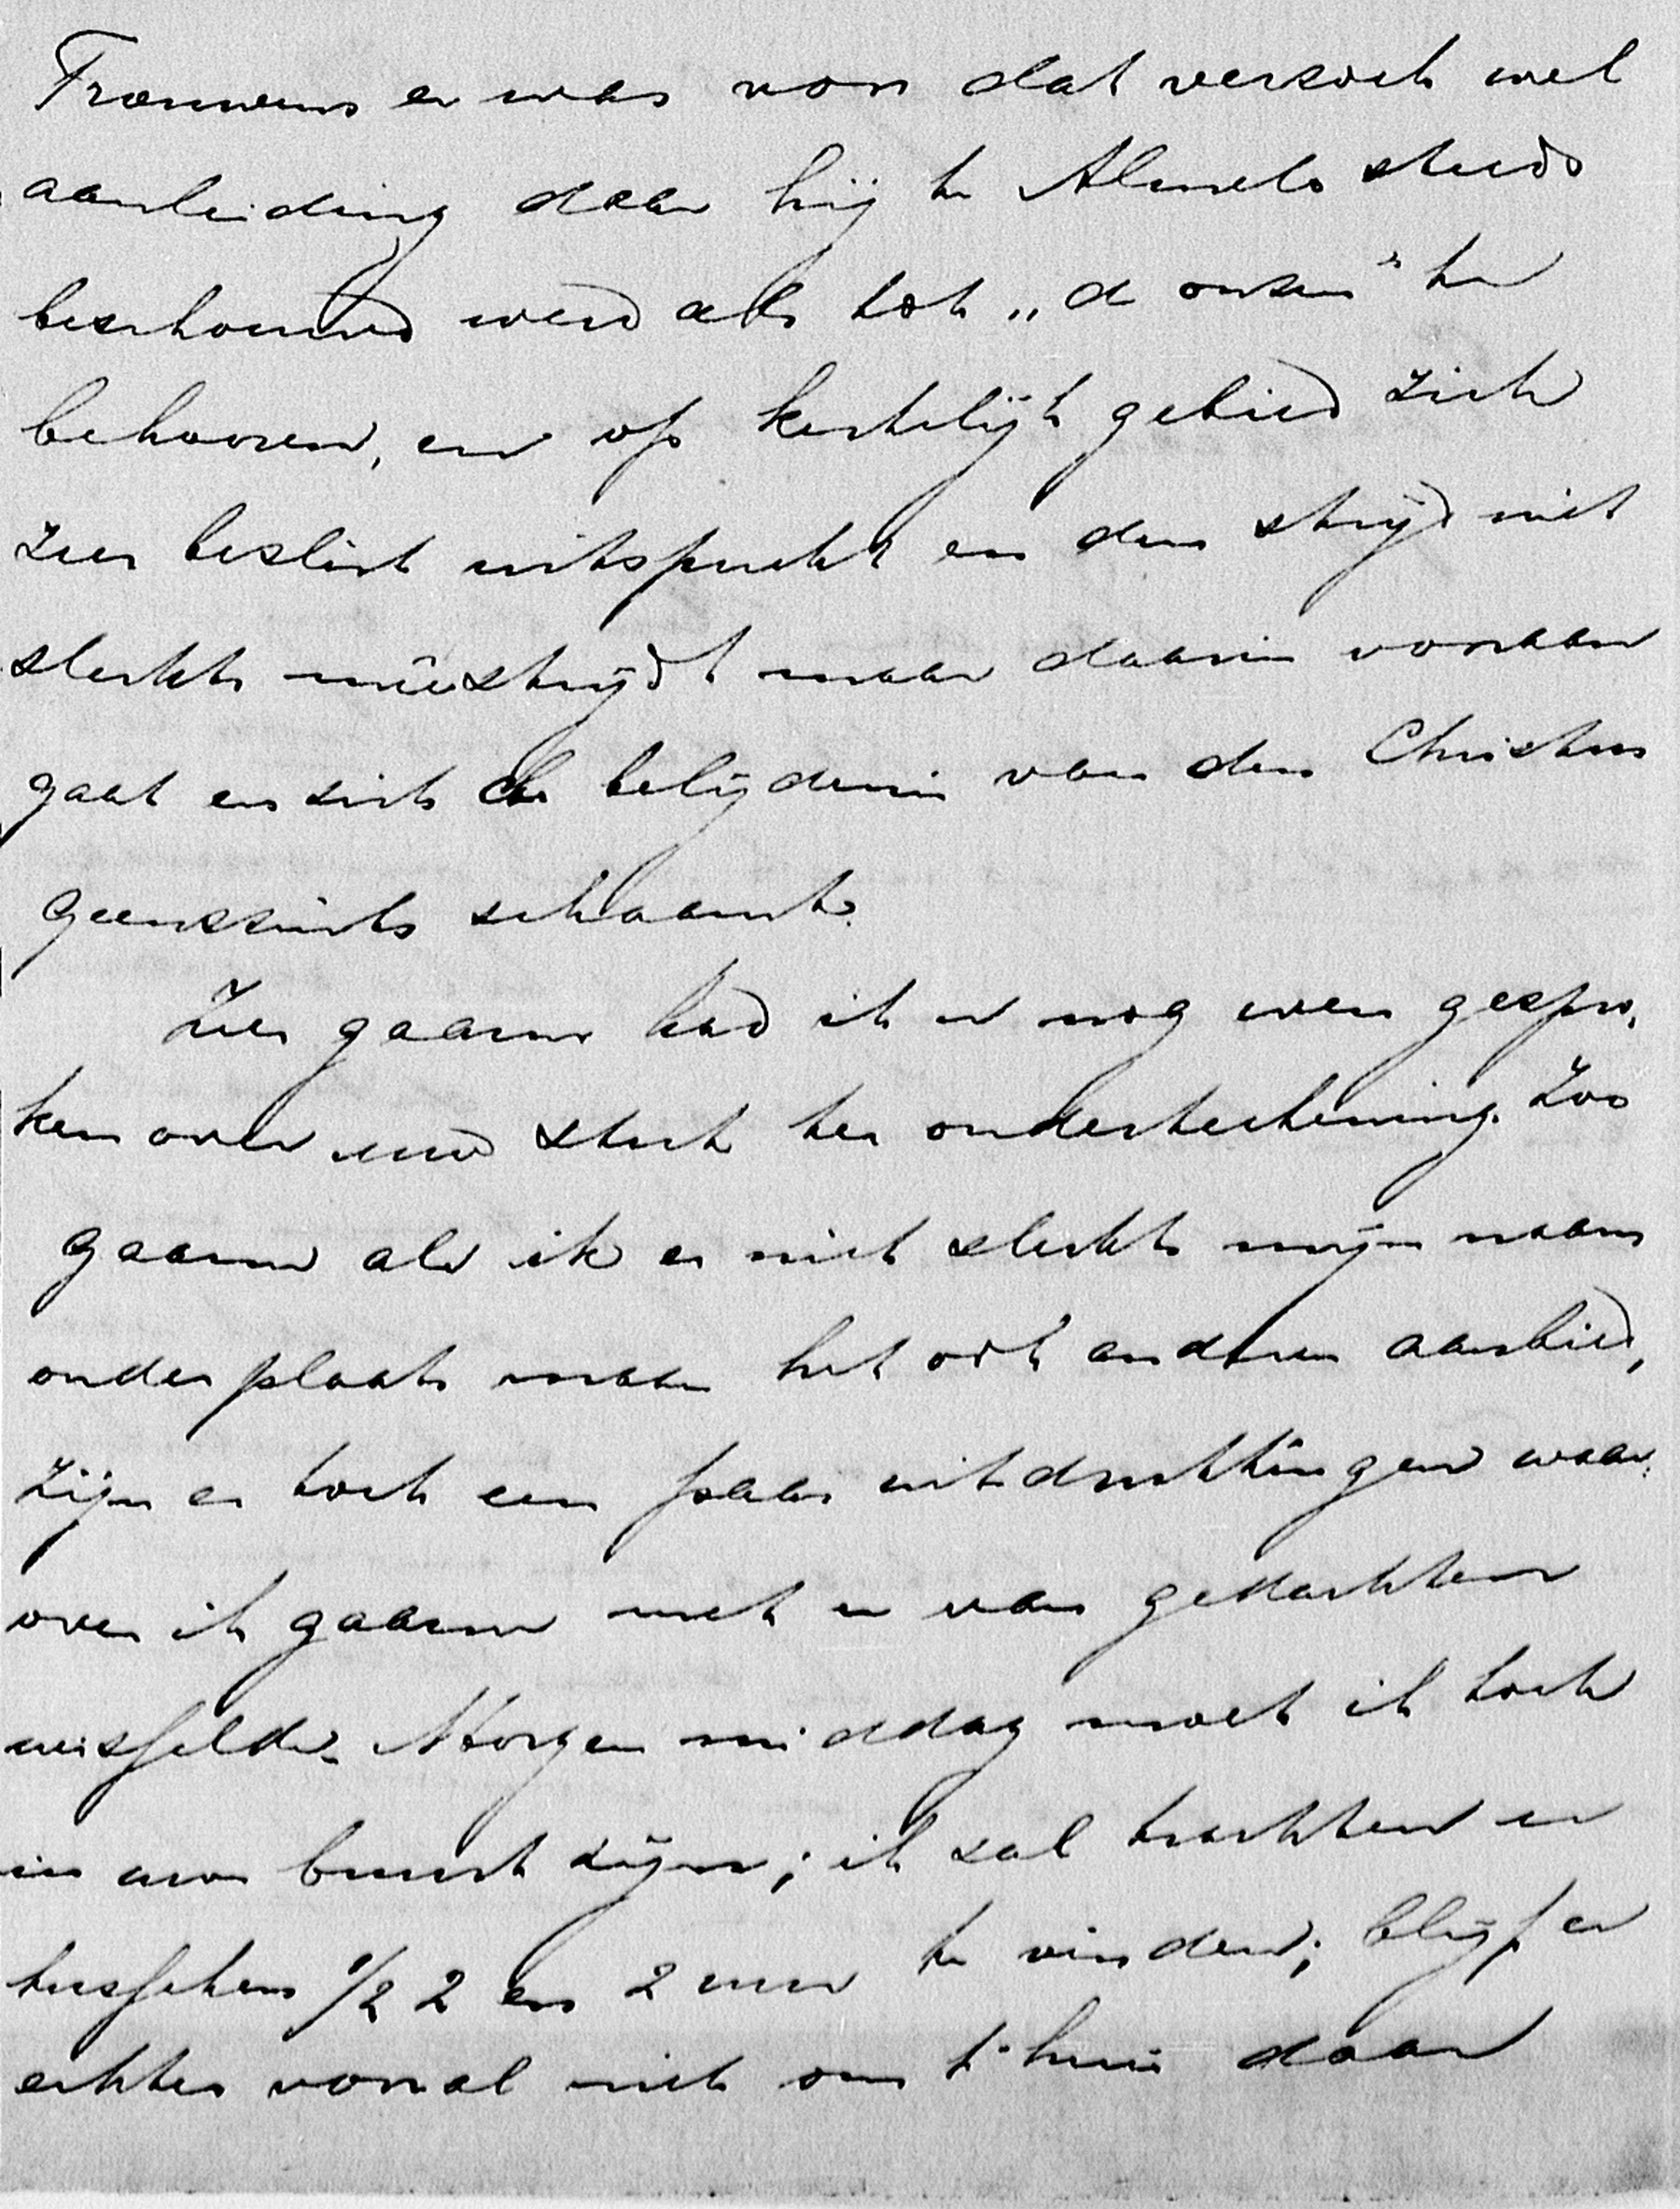 Trouwens er was voor dat verzoek wel
aanleiding daar hij te Almelo steeds
beschouwd werd als tot „de onzen" te
behooren, en op kerkelijk gebied zich
zeer beslist uitspreekt en den strijd niet
slechts meêstrijdt maar daarin vooraan
gaat en zich de belijdenis van den Christus
geenszints schaamt.
Zeer gaarne had ik u nog even gespro-
ken over uw stuk ter onderteekening. Zoo
gaarne als ik er niet slechts mijn naam
onder plaats maar het ook anderen aanbied,
zijn er toch een paar uitdrukkingen waar-
over ik gaarne met u van gedachten
wisselde. Morgen middag moet ik toch
in uw buurt zijn; ik zal trachten u
tusschen 1/2 2 en 2 uur te vinden; blijf er
echter vooral niet om t'huis daar